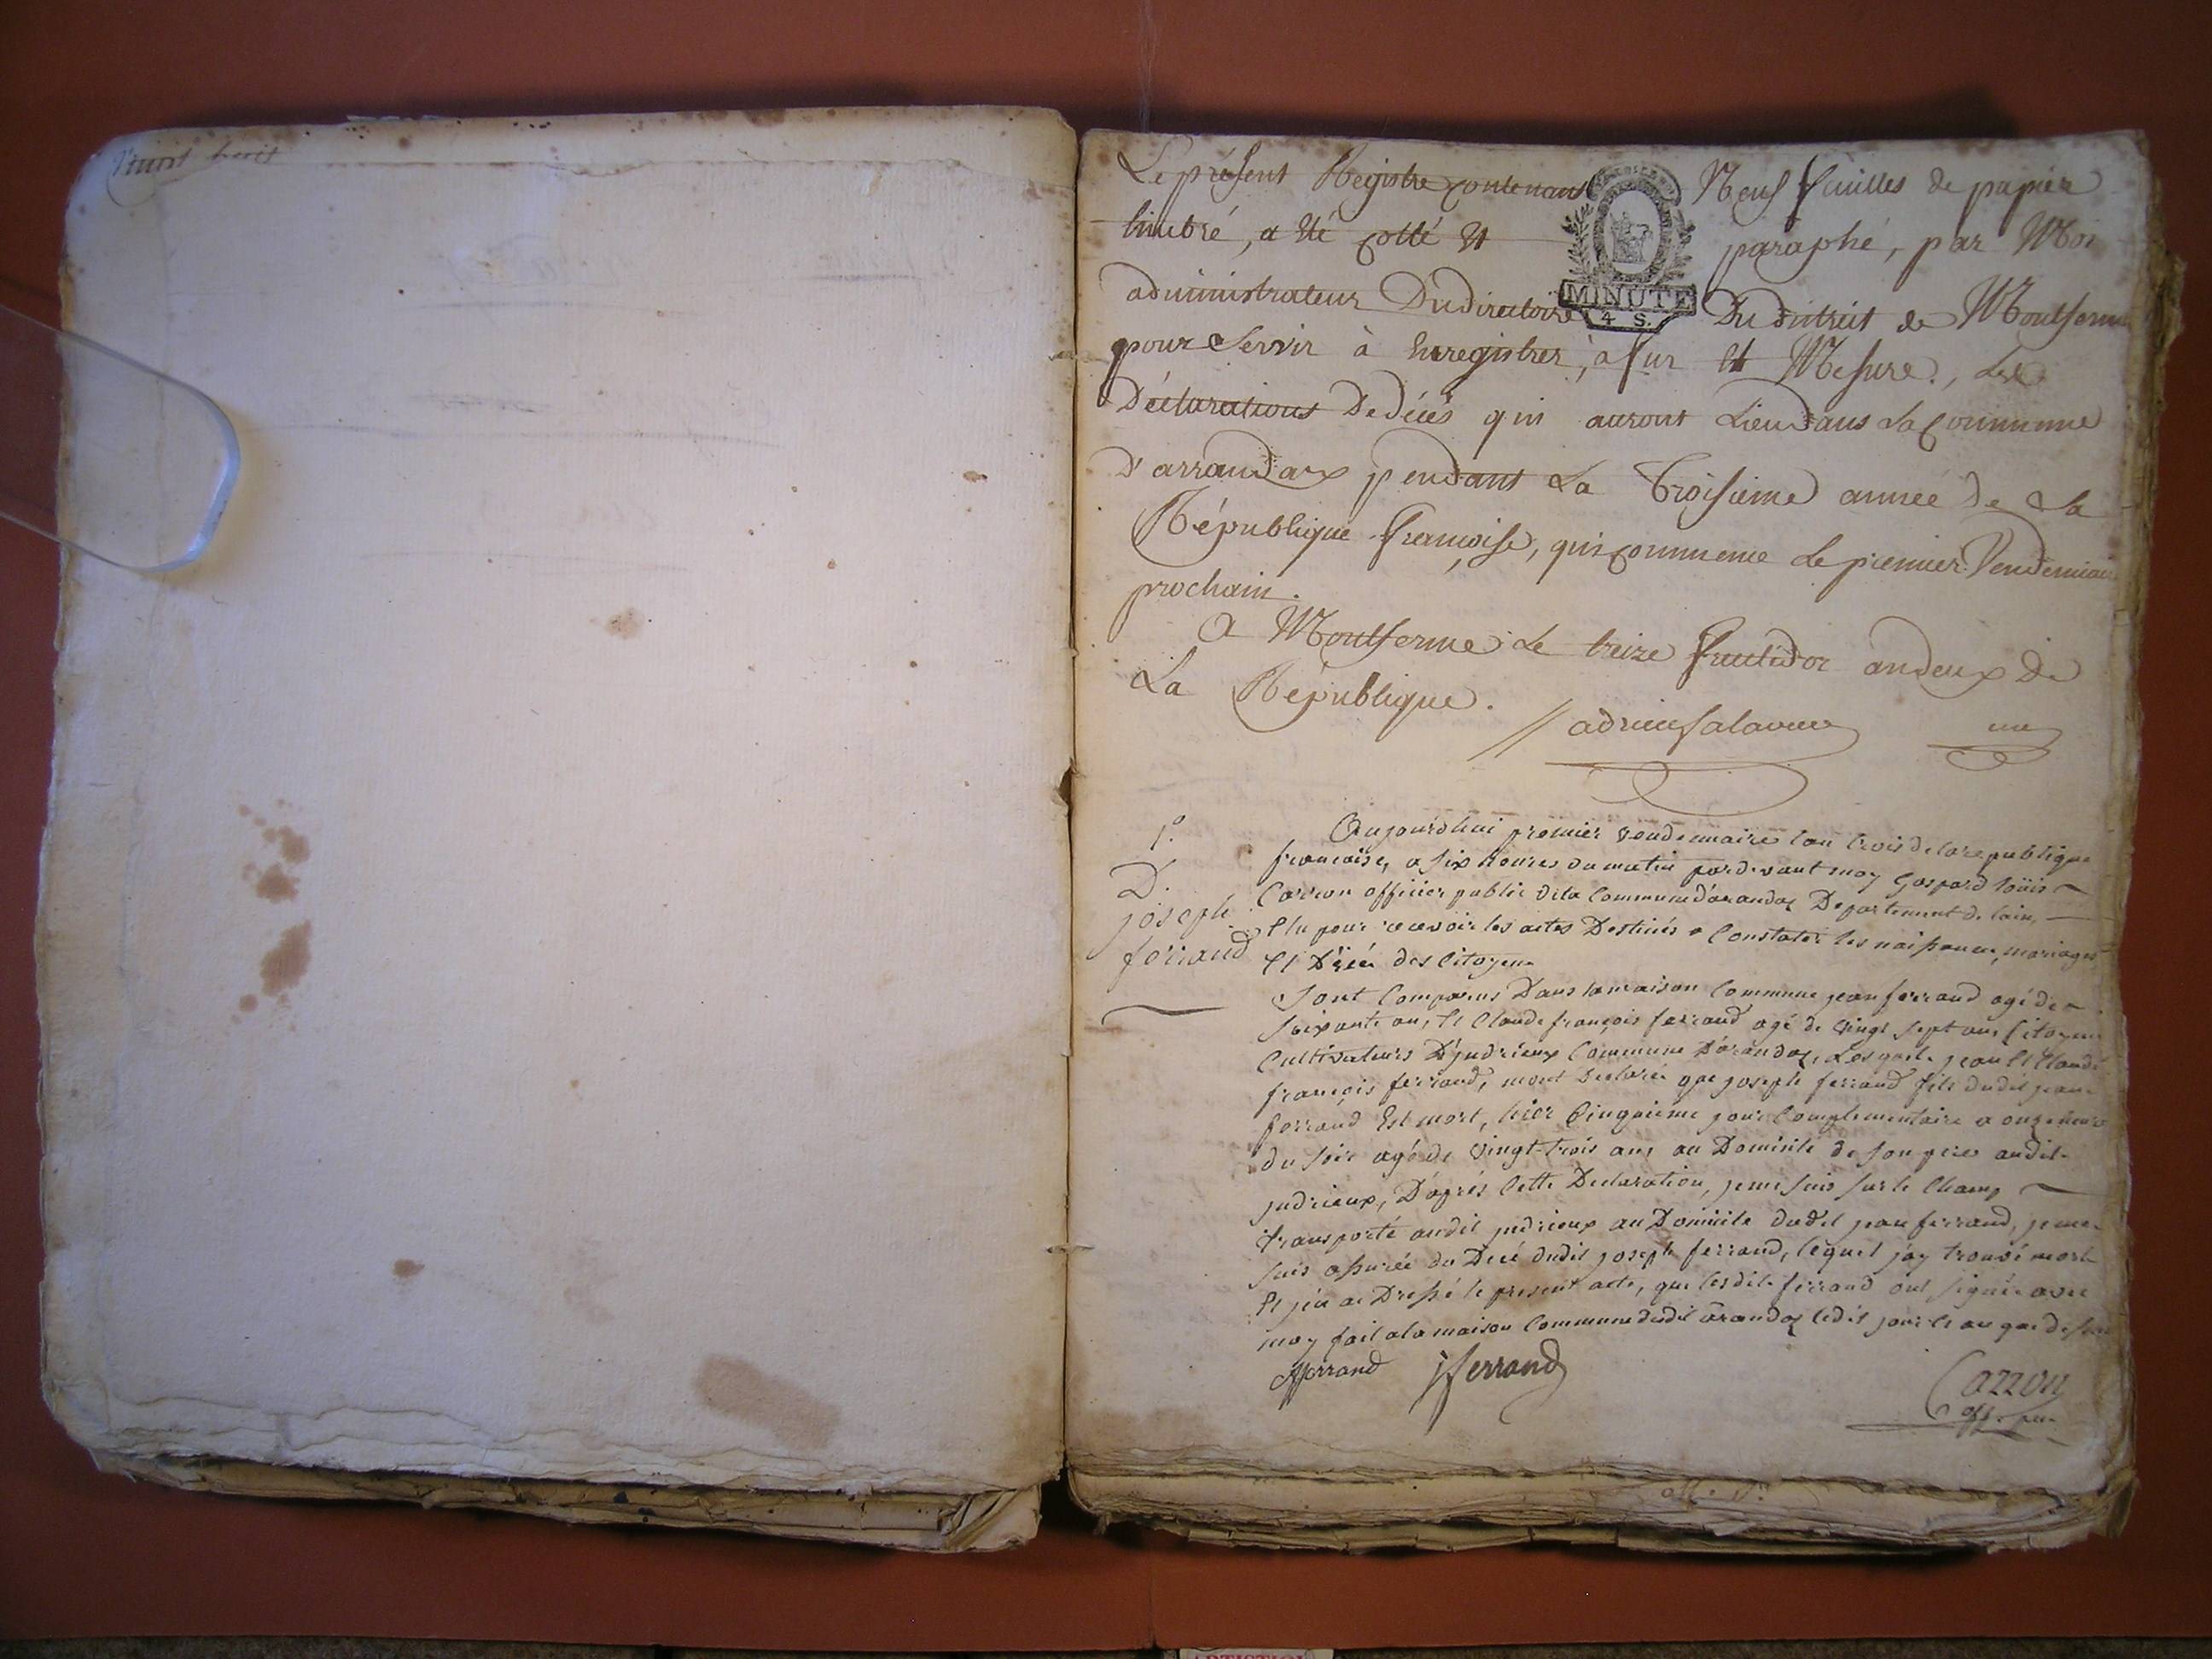 Le présent Registre contenant Neuf feuilles de papier
timbré, a été cotté et paraphé, par Moi
MINUTE
4 S.
administrateur Du directoire Du district de Montferme
pour Servir à Enregistrer, a fur et Mesure, Les
Déclarations De décès qui auront Lieu dans La Commune
D'arrandax pendant La Troisieme année de La
République françoise, qui commence Le premier Vendemiaire
prochain.
A Montferme Le treize fructidor an deux De
La République.
une
1.º
D.
joseph
ferrand
Aujourdhui premier vendemiaire lan trois de la republique
francaise, a six heures du matin pardevant moy Gaspard loüis
Carron officier public de la Commune d'arandax Departement de lain,
Elu pour recevoir les actes Destinés a Constater les naissances, mariages
Et Décés des Citoyens
Sont Comparus Dans la maison Commune jean ferrand agé de
soixante ans, Et Claude françois ferrand agé de vingt sept ans Citoyens
Cultivateurs D'judrieux Commune D'arandax, Lesquels jean Et Claude
françois ferrand, mont Declaré que joseph ferrand fils dudit jean
ferrand Est mort, hier Cinquieme jour Complementaire a onze heures
du soir agé de vingt-trois ans au Domicile de son pere audit
judrieux, D'aprés Cette Declaration, je me suis sur le Champ
transporté audit judrieux au Domicile dudit jean ferrand, je me
suis assurée du Decé dudit joseph ferrand, lequel j'ay trouvé mort
Et j'en ai Dressé le present acte, que lesdits ferrand ont signée avec
moy fait a la maison Commune dudit arandax ledit jour et an que dessus
ferrand jferrand
Carron
off. pu.